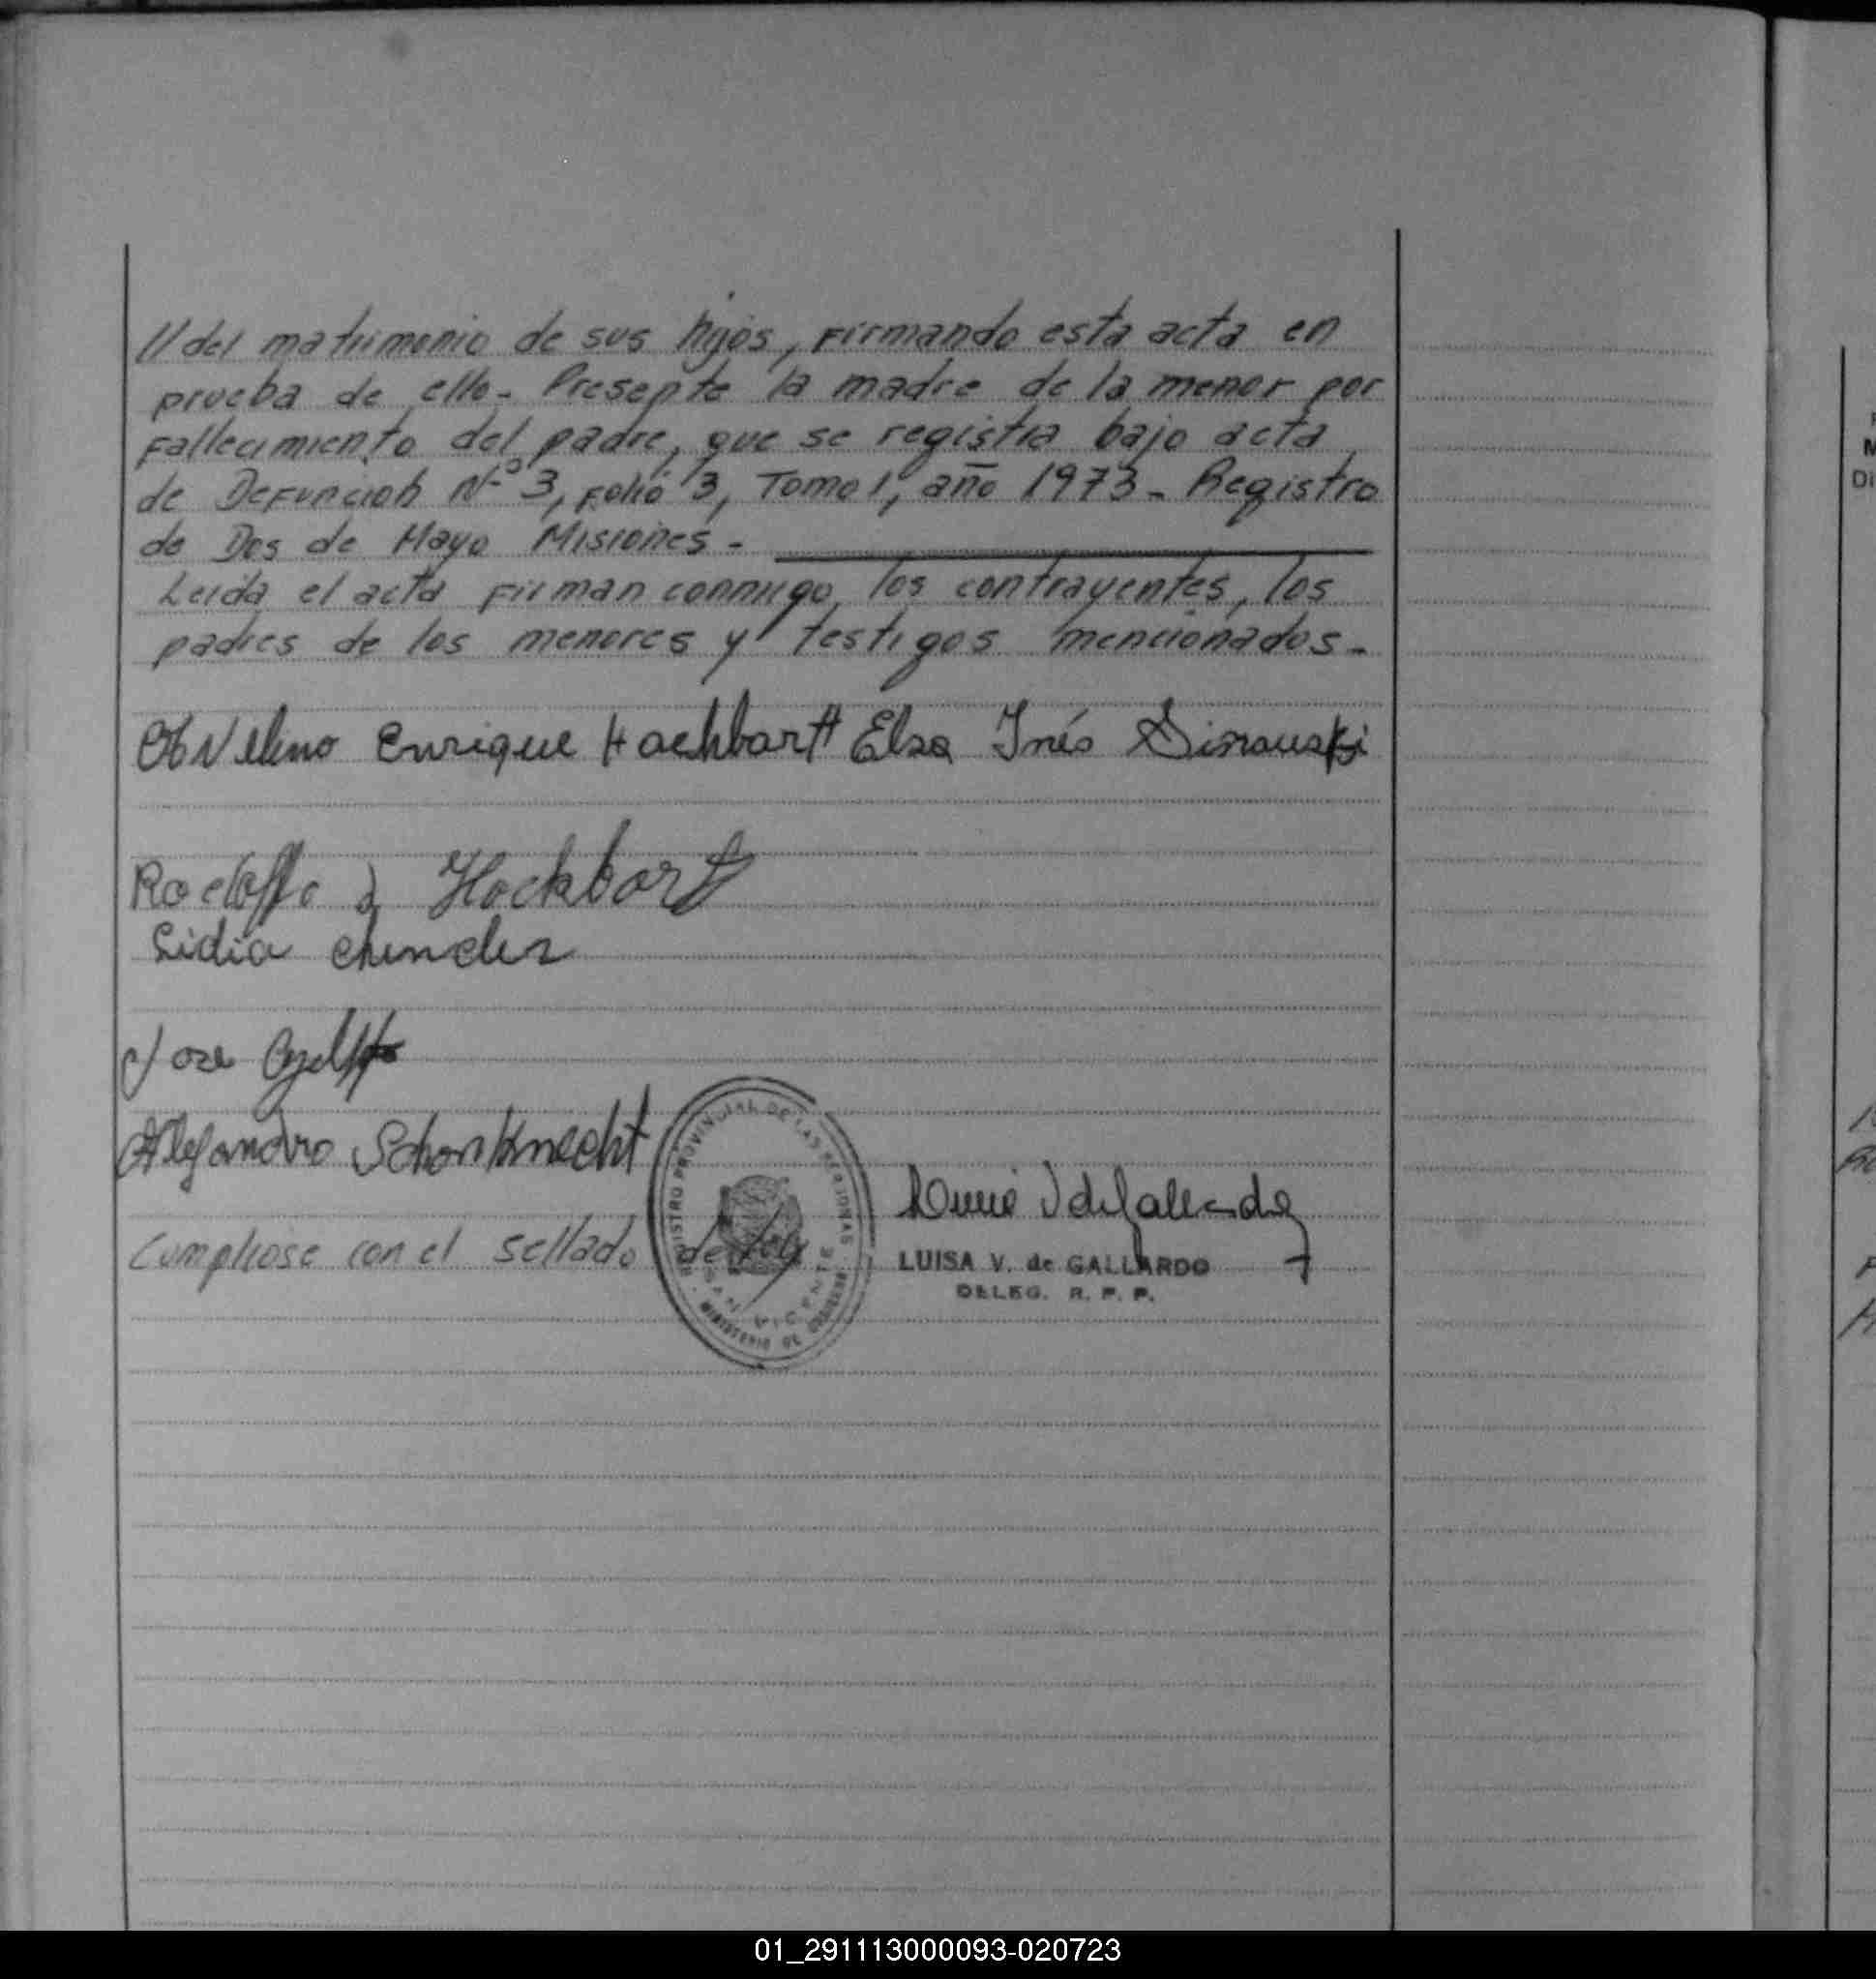 // del matrimonio de sus hijos, firmando esta acta en
prueba de ello.- Presente la madre de la menor por
fallecimiento del padre, que se registra bajo acta
de Defunción Nº 3, folio 3, Tomo 1, año 1973.- Registro
de Dos de Mayo Misiones.-
Leida el acta firman conmigo, los contrayentes, los
padres de los menores y testigos mencionados.-
Enrique Hachbartt Elsa Inés
Rodolfo Hockbart
Lidia
Jose
Alejandro Schonknecht
Cumpliose con el sellado de ley
REGISTRO PROVINCIAL DE LAS PERSONAS
SAN VICENTE
MINISTERIO DE GOBIERNO
LUISA V. de GALLARDO
DELEG. R. P. P.
01_291113000093-020723